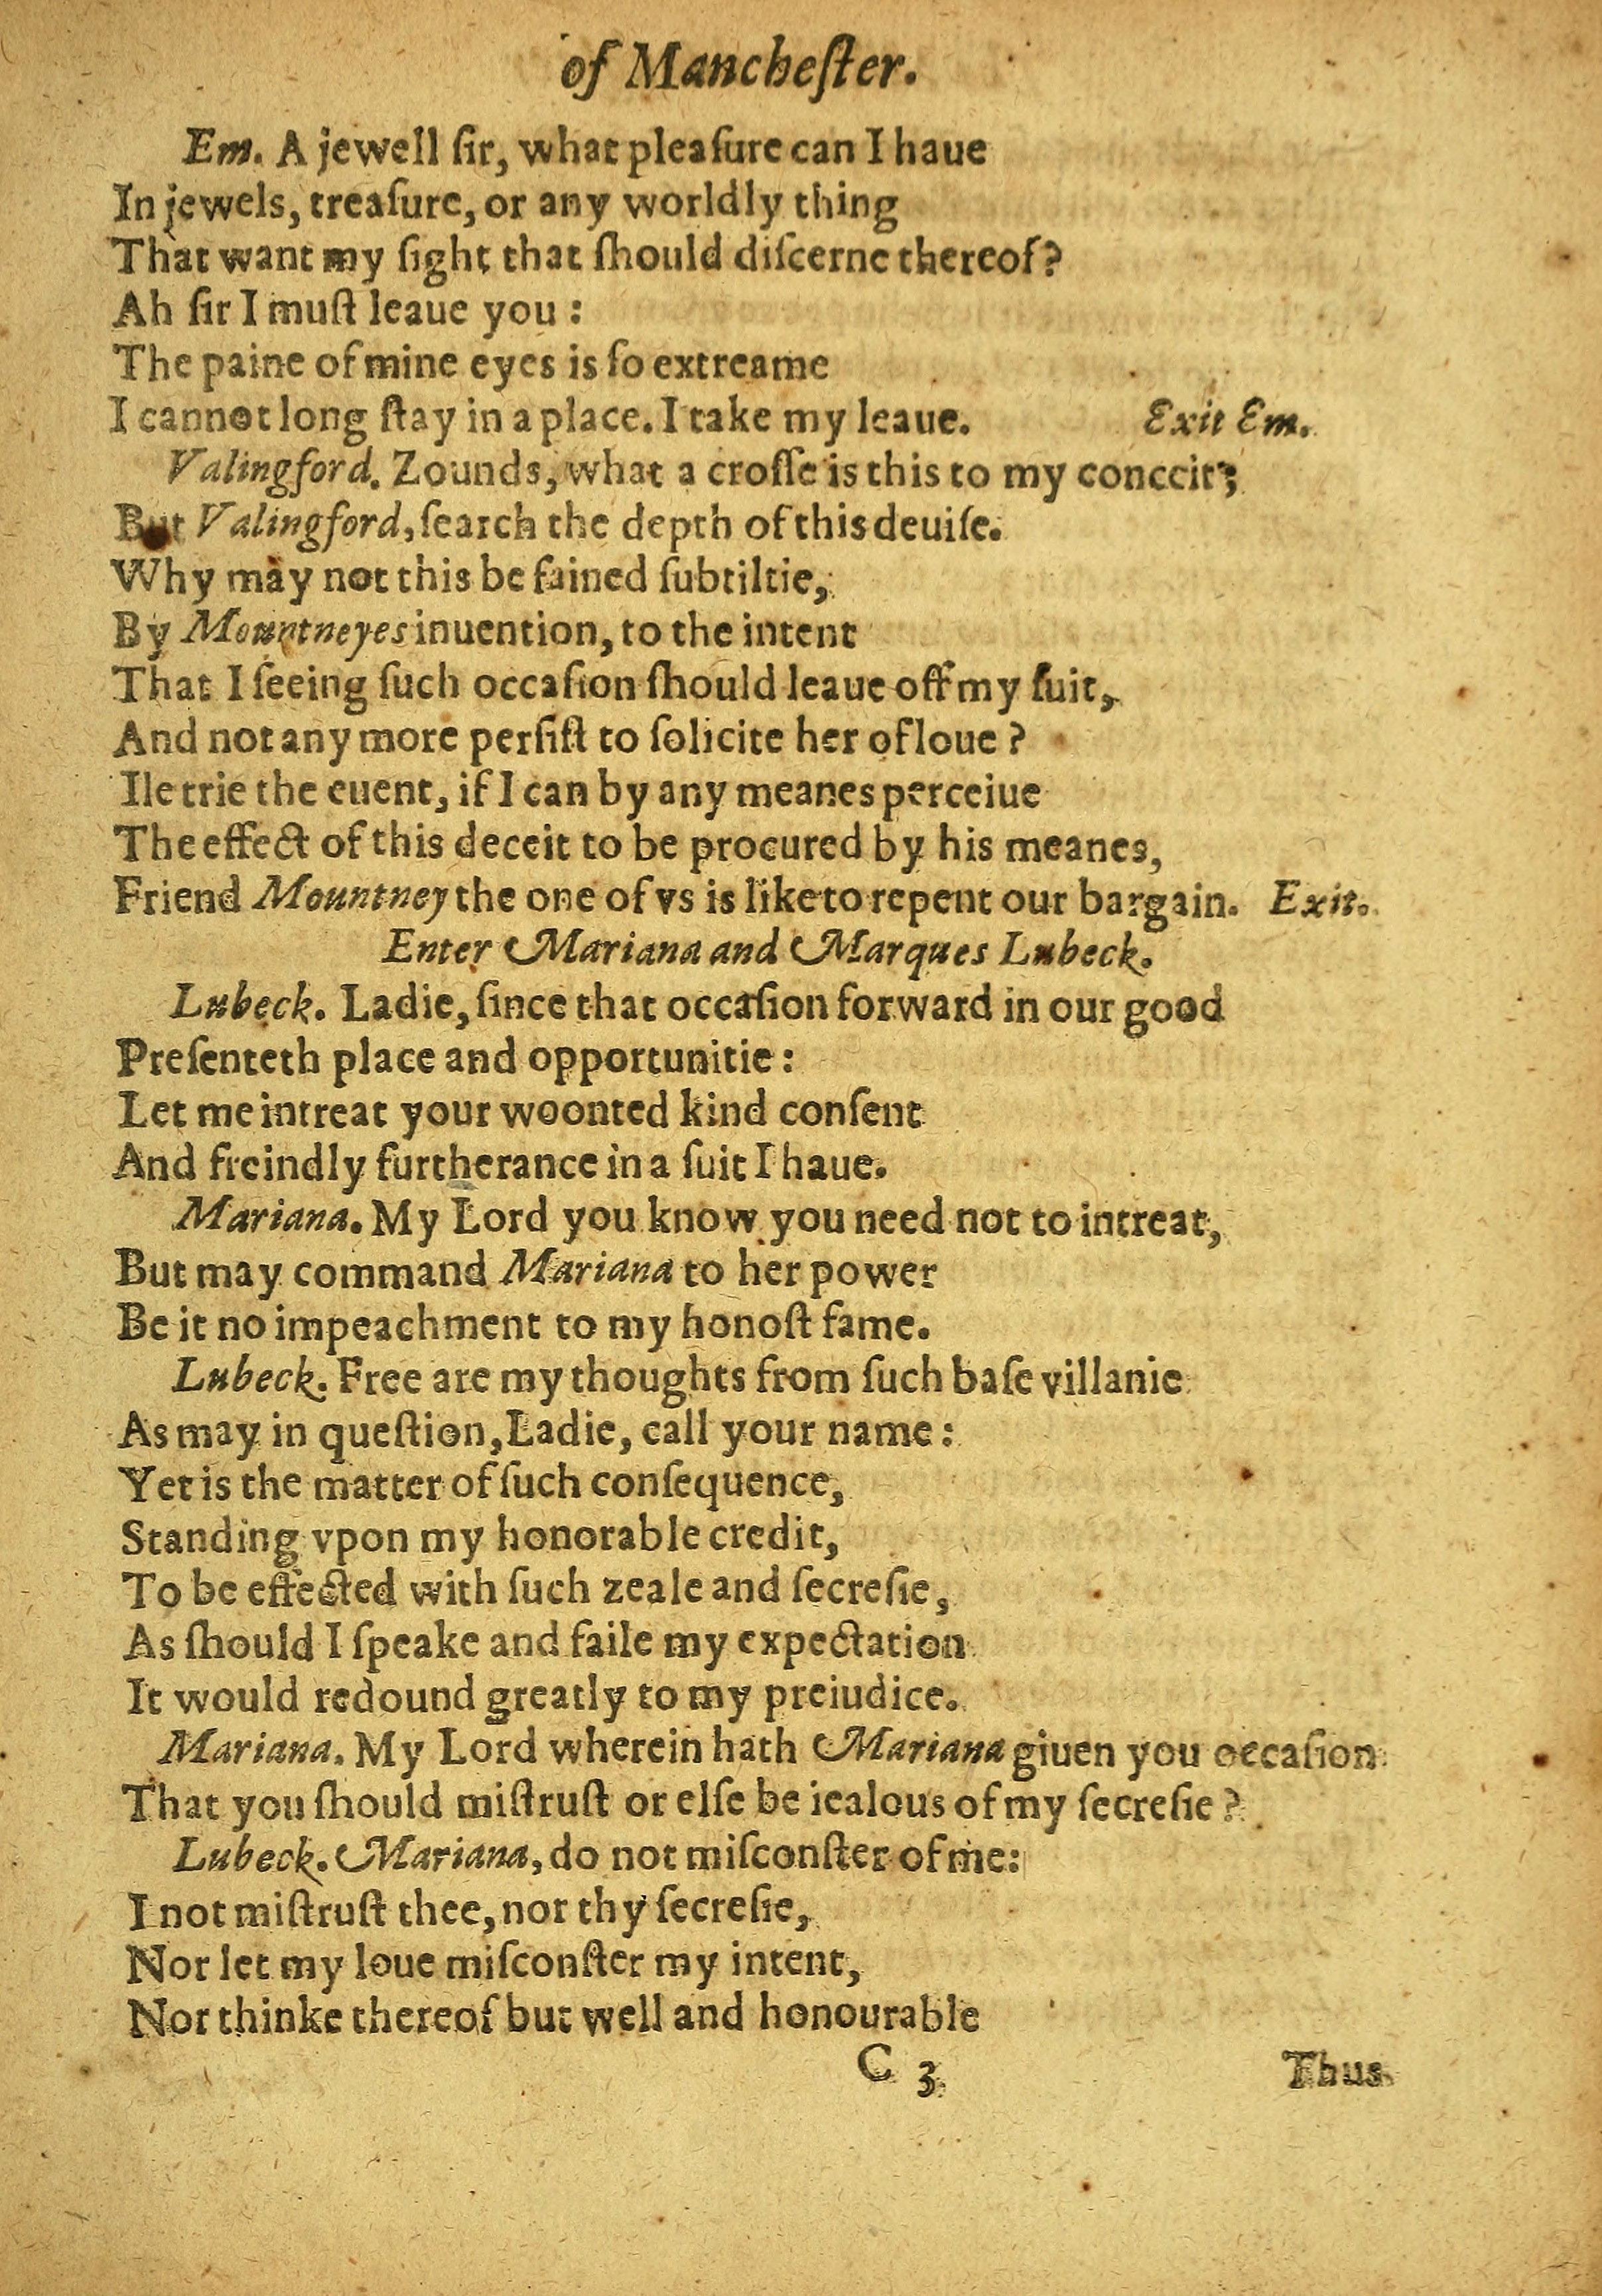 of Mancheſter.
Em. A jewell ſir, what pleaſure can I haue
In jewels, treaſure, or any worldly thing
That want my ſight that ſhould diſcerne thereof?
Ah ſir I muſt leaue you:
The paine of mine eyes is ſo extreame
I cannot long ſtay in a place. I take my leaue. Exit Em.
Valingford. Zounds, what a croſſe is this to my conceit;
But Valingford, ſearch the depth of this deuiſe.
Why may not this be fained ſubtiltie,
By Mountneyes inuention, to the intent
That I ſeeing ſuch occaſion ſhould leaue off my ſuit,
And not any more perſiſt to ſolicite her of loue?
Ile trie the euent, if I can by any meanes perceiue
The effect of this deceit to be procured by his meanes,
Friend Mountney the one of vs is like to repent our bargain. Exit.
Enter Mariana and Marques Lubeck.
Lubeck. Ladie, ſince that occaſion forward in our good
Preſenteth place and opportunitie:
Let me intreat your woonted kind conſent
And freindly furtherance in a ſuit I haue.
Mariana. My Lord you know you need not to intreat,
But may command Mariana to her power
Be it no impeachment to my honoſt fame.
Lubeck. Free are my thoughts from ſuch baſe villanie
As may in queſtion, Ladie, call your name:
Yet is the matter of ſuch conſequence,
Standing vpon my honorable credit,
To be effected with ſuch zeale and ſecreſie,
As ſhould I ſpeake and faile my expectation
It would redound greatly to my preiudice.
Mariana. My Lord wherein hath Mariana giuen you occaſion
That you ſhould miſtruſt or elſe be iealous of my ſecreſie?
Lubeck. Mariana, do not miſconſter of me:
I not miſtruſt thee, nor thy ſecreſie,
Nor let my loue miſconſter my intent,
Nor thinke thereof but well and honourable
C 3 Thus